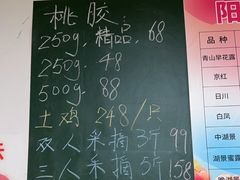 桃胶
250g.精品.68
250g.48
500g.88
土鸡 248/只
双人采摘3斤99
三人采摘5斤158
阳
品种
青山早花露
京红
日川
白凤
中湖景
湖景蜜露